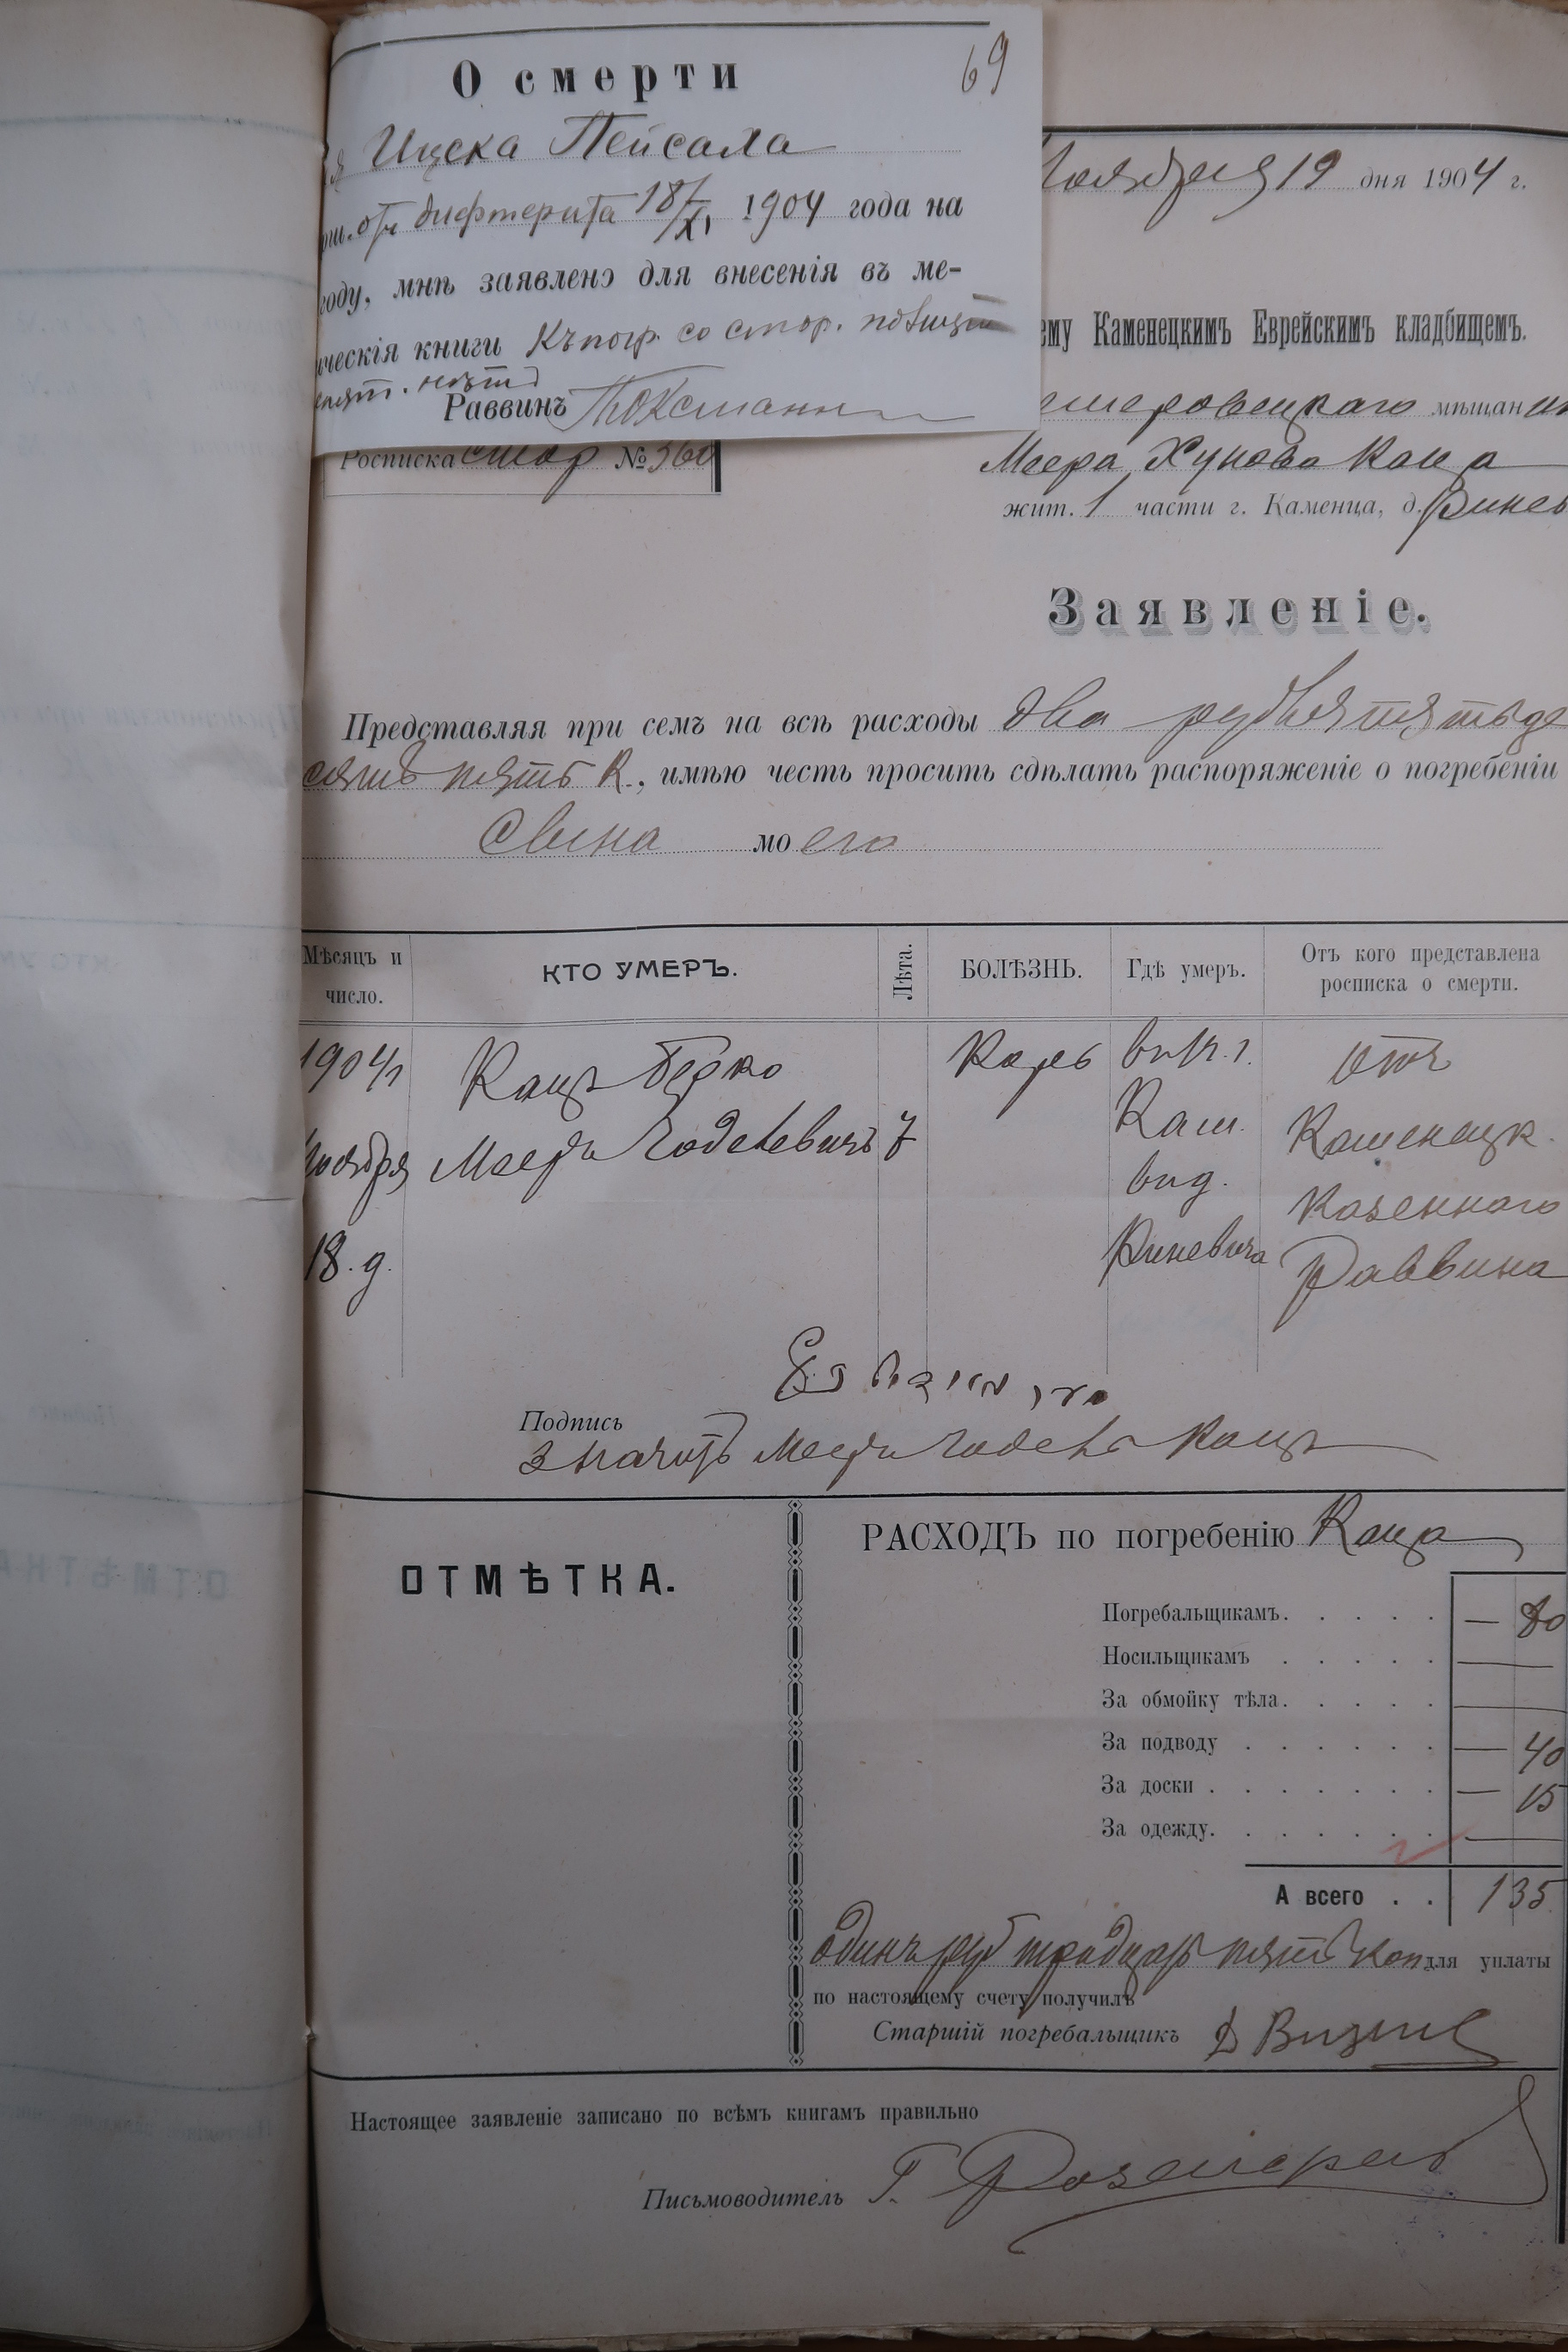 О смерти
69
Ицека Пейсаха
отъ дифтерита 18/XI 1904 года на
году, мнѣ заявлено для внесенія въ ме-
ическія книги Къ погр. со стор. полиціи
Раввинъ
Росписка № 360
Ноября 19 дня 1904 г.
ему Каменецкимъ Еврейскимъ кладбищемъ.
мѣщан
Меера Каца
жит. 1 части г. Каменца, д.
Заявленіе.
Представляя при семъ на всѣ расходы два рубля пятьде
сятъ пять К., имѣю честь просить сдѣлать распоряженіе о погребеніи
сына моего
Мѣсяцъ и число. КТО УМЕРЪ. Лѣта. БОЛѢЗНЬ. Гдѣ умеръ. Отъ кого представлена росписка о смерти.
1904 Кацъ Берко Корь въ г. отъ
ноября Мееръ 7 Кам. Каменецк.
в д. казеннаго
18 д. Раввина
Подпись
значитъ Мееръ Кацъ
ОТМѢТКА.
РАСХОДЪ по погребенію Каца
Погребальщикамъ. — 80
Носильщикамъ —
За обмойку тѣла. —
За подводу — 40
За доски — 15
За одежду. —
А всего 1 35
одинъ руб тридцать пять коп для уплаты
по настоящему счету получилъ
Старшій погребальщикъ
Настоящее заявленіе записано по всѣмъ книгамъ правильно
Письмоводитель Г.